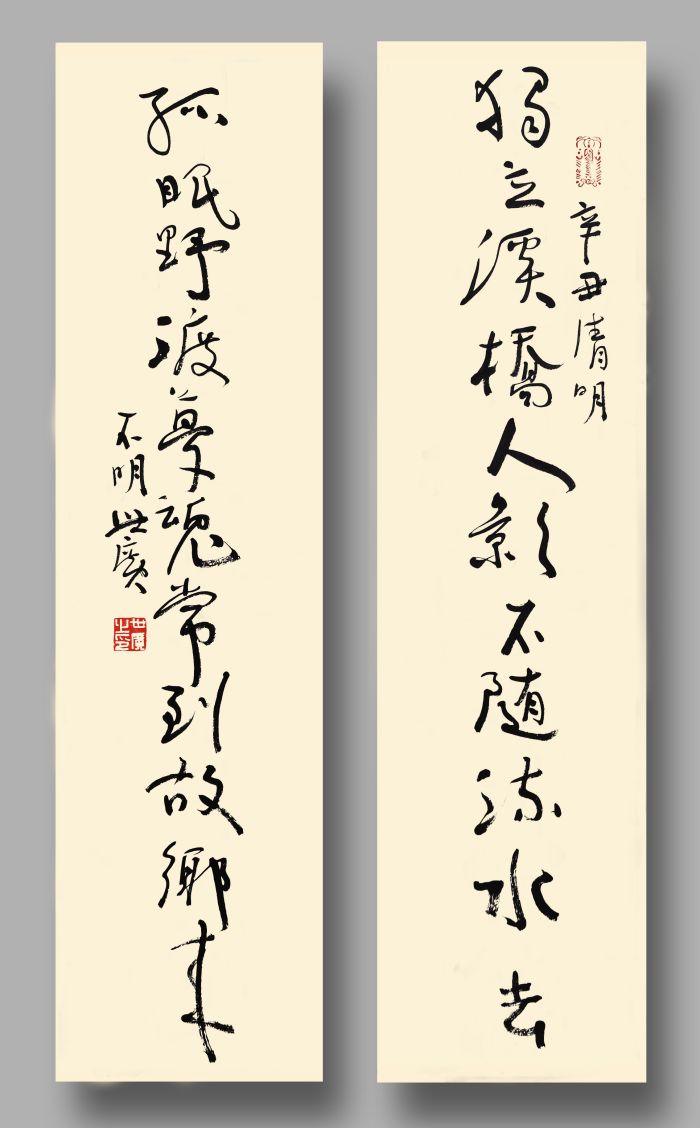 辛丑清明
獨立溪橋人影不隨流水去
孤眠野渡夢魂常到故鄉來
明世廣
世廣之印